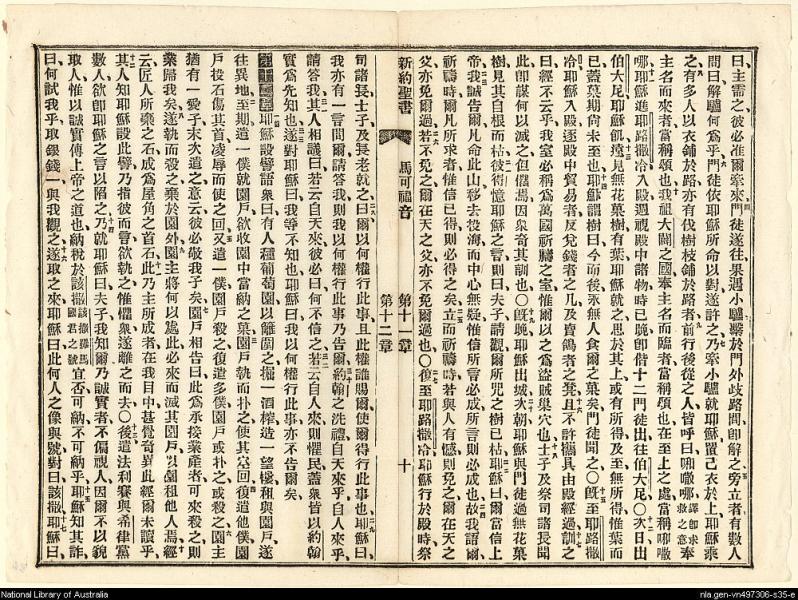 曰主需之彼必准爾牽來門徒遂往果遇小驢繫於門外歧路間即解之旁立者有數人
間曰解驢何爲乎門徒依耶穌所命以對遂許之乃牽小驢就耶穌置己衣於上耶穌乘
之有多人以衣鋪於路亦有伐樹枝鋪於路者前行後從之人皆呼曰㗎嚹哪譯即求救之意奉
主名而來者當稱頌也我祖大闢之國奉主名而臨者當稱頌也在至上之處當稱㗎嚹
哪耶穌進耶路撒冷入殿週視殿中諸物時已晚即偕十二門徒出往伯大尼○次日出
伯大尼耶穌飢遠見無花菓樹有葉耶穌就之思於其上或有所得及至無所得惟葉而
已蓋菓期尚未至也耶穌謂樹曰今而後永無人食爾之菓矣門徒聞之○旣至耶路撒
冷耶穌入殿逐殿中貿易者反兌錢者之几及賣鴿者之凳且不許攜具由殿經過訓之
曰經不云乎我室必稱爲萬國祈禱之室惟爾以之爲盜賊巢穴也士子及祭司諸長聞
此即謀何以滅之但懼焉因衆奇其訓也○旣晚耶穌出城次朝耶穌與門徒過無花菓
樹見其自根而枯彼得憶耶穌之言則曰夫子請觀爾所咒之樹已枯耶穌曰爾當信上
帝我誠告爾凡命此山移去投海而中心無疑惟信所言必成所言則必成也故我語爾
祈禱時爾凡所求者惟信已得則必得之矣立而祈禱時若與人有憾則免之爾在天之
父亦免爾過若不免之爾在天之父亦不免爾過也○復至耶路撒冷耶穌行於殿時祭
新約聖書
馬可福音
第十一章
第十二章
十
司諸長士子及長老就之曰爾以何權行此事且此權誰賜爾使爾得行此事也耶穌曰
我亦有一言問爾請答我則我以何權行此事乃告爾約翰之洗禮自天來乎自人來乎
請答我其人相議曰若云自天來彼必曰何不信之若云自人來則懼民蓋衆皆以約翰
實爲先知也遂對耶穌曰我等不知也耶穌曰我以何權行此事亦不告爾矣
耶穌設譬語衆曰有人種葡萄園以籬圍之掘一酒榨造一望樓租與園戶遂
往異地至期遣一僕就園戶欲收園中當納之菓園戶執而扑之使其空回復遣他僕園
戶投石傷其首凌辱而使之回又遣一僕園戶殺之復遣多僕園戶或扑之或殺之園主
猶有一愛子末次遣之意云彼必敬我子矣園戶相告曰此爲承接業產者可來殺之則
業歸我矣遂執而殺之棄於園外園主將何以爲此必來而滅其園戶以園租他人焉經
云匠人所棄之石成爲屋角之首石此乃主所成者在我目中甚覺奇異此經爾未讀乎
其人知耶穌設此譬乃指彼而言欲執之惟懼衆遂離之而去○後遣法利賽與希律黨
數人欲即耶穌之言以陷之乃就耶穌曰夫子我知爾乃誠實者不偏視人因爾不以貌
取人惟以誠實傳上帝之道也納稅於該撒該撒羅馬國君之號宜否可納不可納乎耶穌知其詐
曰何試我乎取銀錢一與我觀之遂取之來耶穌曰此何人之像與號對曰該撒耶穌曰
National Library of Australia
nla.gen-vn497306-s35-e